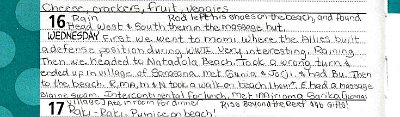 Cheese, crackers, fruit, veggies
16 Rain Rod left his shoes on the beach, and found
Head West & South them in the massage hut.
WEDNESDAY First we went to momi, where the Allies built
a defense position during WWII. Very interesting. Raining.
Then we headed to Natadola Beach. Took a wrong turn &
ended up in village of Sanasana. met Sunia & Joeji, & had Bu. Then
to the beach. R, MA, M & N took a walk on beach. I hem E. had a massage
Blaine swam. Intercontinental for lunch. met
village) Ate in room for dinner Rise Beyond the Reef 4 Gifts!
17 Raki-Raki. Sunrise on beach!